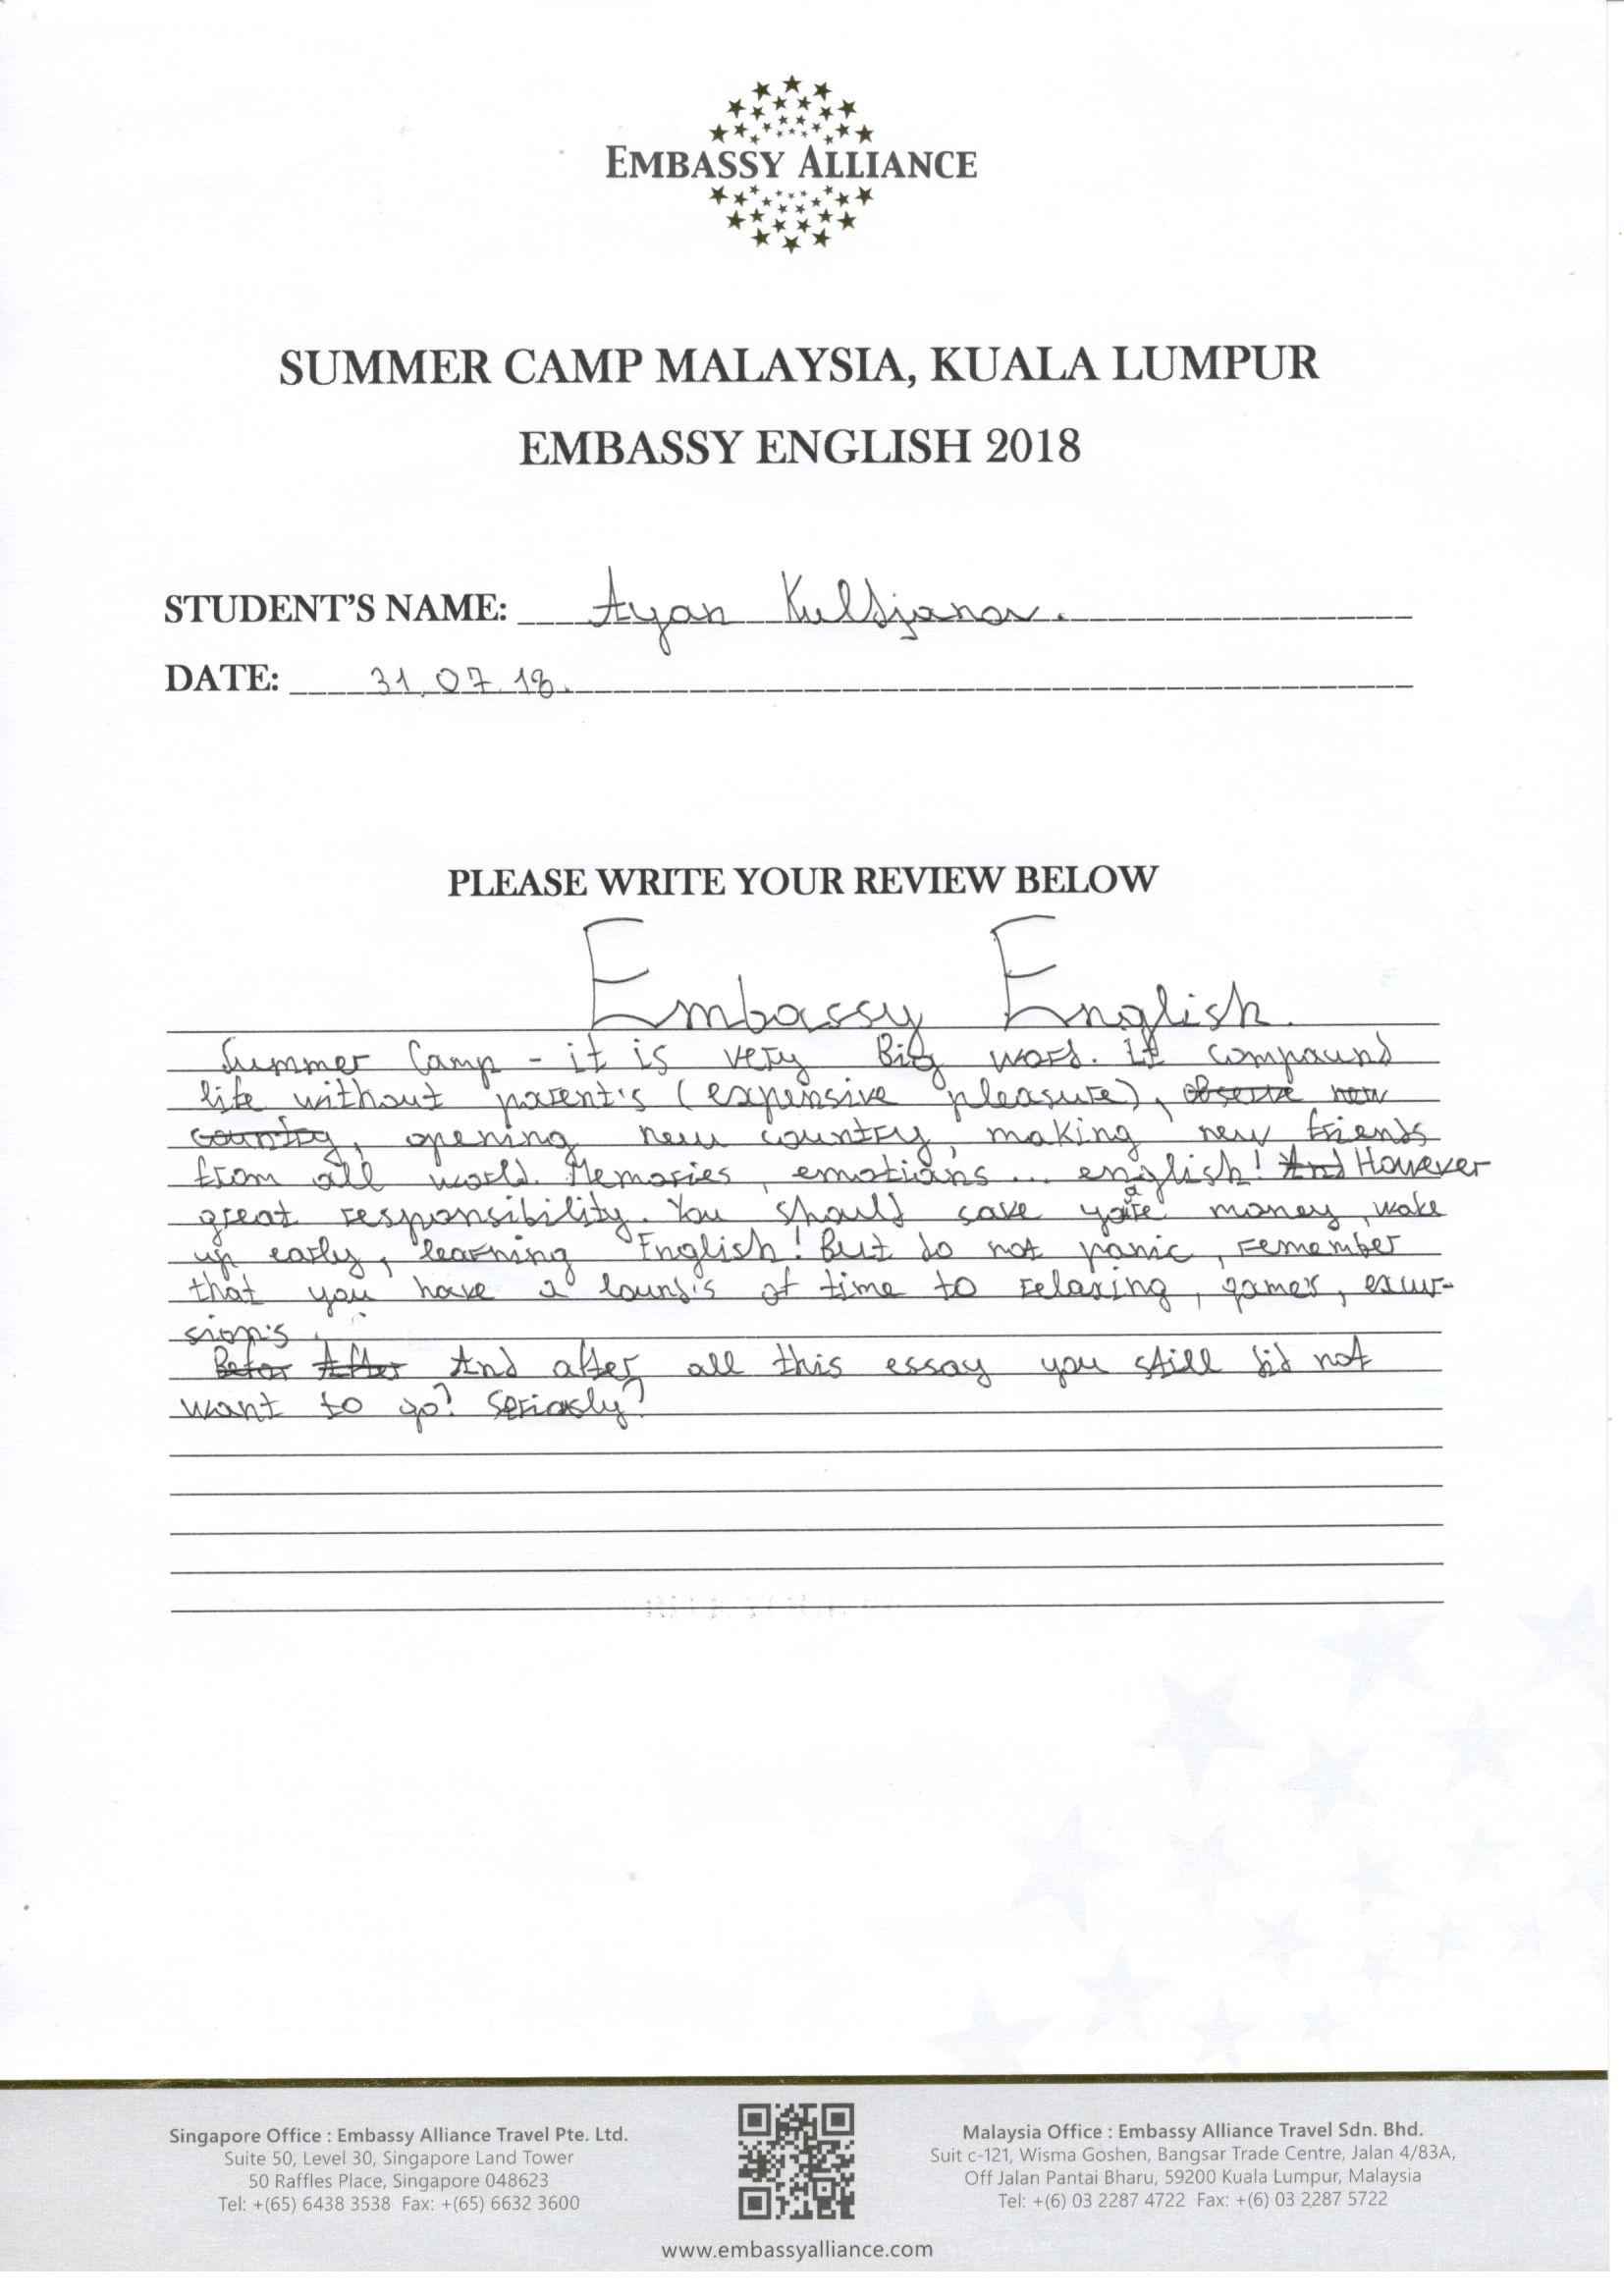 EMBASSY ALLIANCE
SUMMER CAMP MALAYSIA, KUALA LUMPUR
EMBASSY ENGLISH 2018
STUDENT'S NAME: Ayan Kuldjanov.
DATE: 31.07.18.
PLEASE WRITE YOUR REVIEW BELOW
Embassy English.
Summer Camp - it is very Big word. It compaund
life without parent's (expensive pleasure), observe new
country, opening new country, making new friends
from all world. Memories, emotians... english! And However
great responsibility. You should save your money, wake
up early, learning English! But do not panic, remember
that you have a lound's of time to relaxing, games, excur-
sion's.
Befor After And after all this essay you still did not
want to go? Seriosly?
Singapore Office : Embassy Alliance Travel Pte. Ltd.
Suite 50, Level 30, Singapore Land Tower
50 Raffles Place, Singapore 048623
Tel: +(65) 6438 3538 Fax: +(65) 6632 3600
Malaysia Office : Embassy Alliance Travel Sdn. Bhd.
Suit c-121, Wisma Goshen, Bangsar Trade Centre, Jalan 4/83A,
Off Jalan Pantai Bharu, 59200 Kuala Lumpur, Malaysia
Tel: +(6) 03 2287 4722 Fax: +(6) 03 2287 5722
www.embassyalliance.com